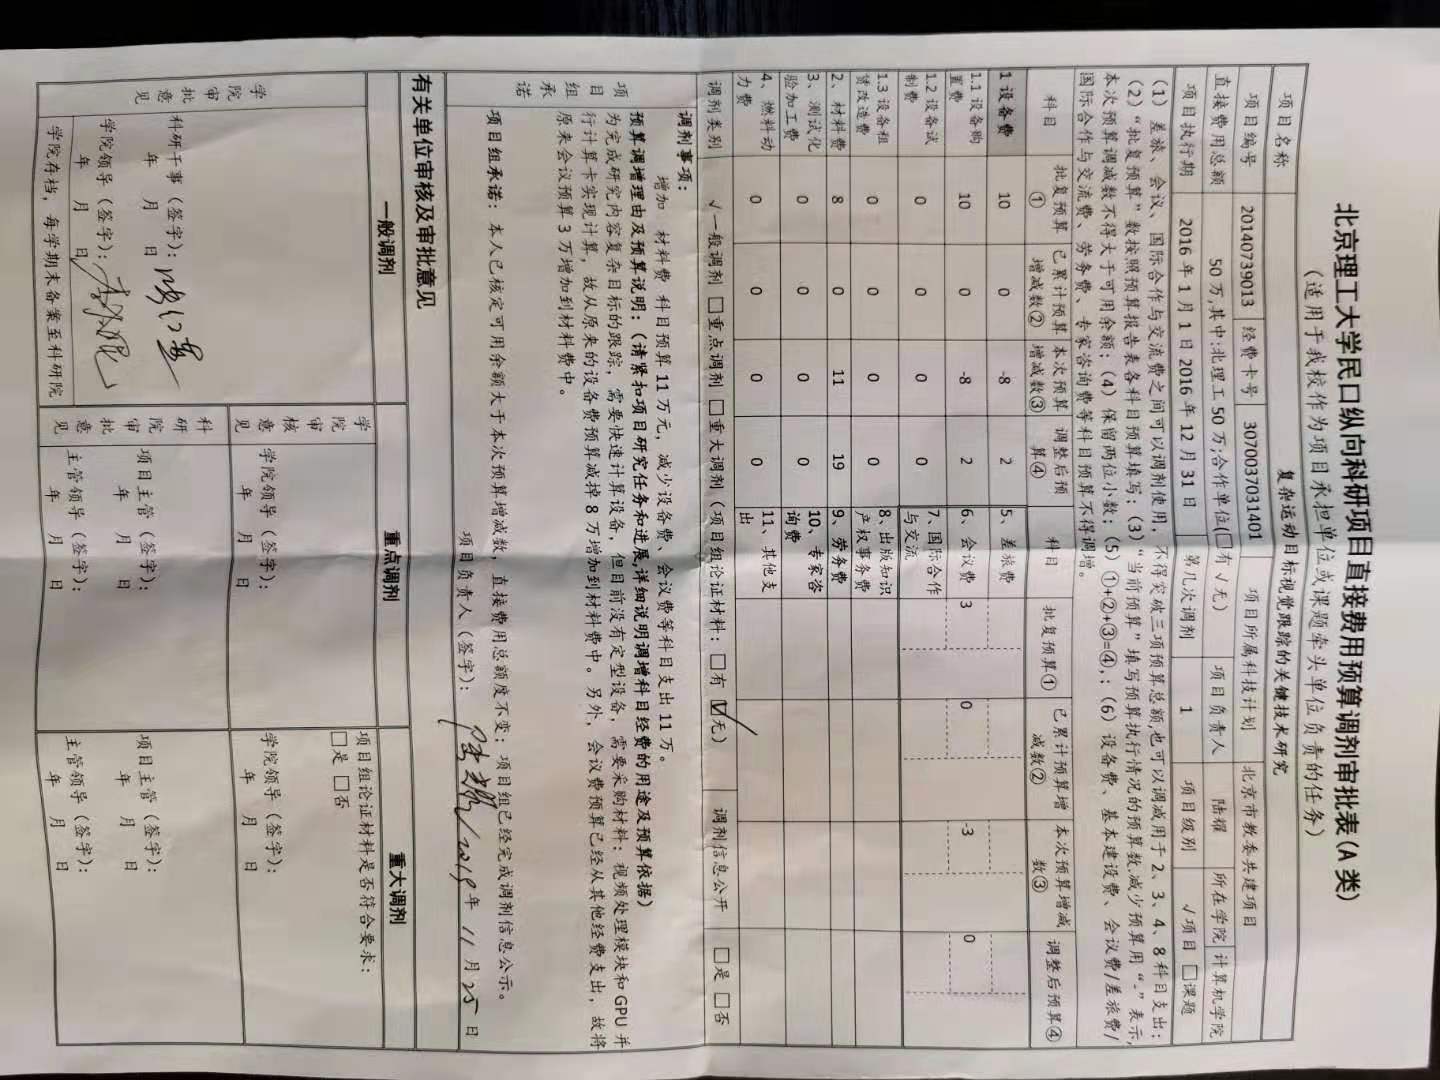 北京理工大学民口纵向科研项目直接费用预算调剂审批表(A 类)
(适用于我校作为项目承担单位或课题牵头单位负责的任务)
项目名称 复杂运动目标视觉跟踪的关键技术研究
项目编号 20140739013 经费卡号 3070037031401 项目所属科技计划 北京市教委共建项目
直接费用总额 50 万,其中:北理工 50 万;合作单位(□有 √无) 项目负责人 陆耀 所在学院 计算机学院
项目执行期 2016 年 1 月 1 日 2016 年 12 月 31 日 第几次调剂 1 项目级别 √项目 □课题
(1) 差旅、会议、国际合作与交流费之间可以调剂使用,不得突破三项预算总额,也可以调减用于 2、3、4、8 科目支出;
(2)“批复预算”数按照预算报告表各科目预算填写;(3)“当前预算”填写预算执行情况的预算数,减少预算用“-”表示,
本次预算调减数不得大于可用余额;(4) 保留两位小数;(5) ①+②+③=④,;(6) 设备费、基本建设费、会议费/差旅费/
国际合作与交流费、劳务费、专家咨询费等科目预算不得调增。
科目 批复预算① 已累计预算增减数② 本次预算增减数③ 调整后预算④ 科目 批复预算① 已累计预算增减数② 本次预算增减数③ 调整后预算④
1 设备费 10 0 -8 2 5、差旅费
1.1 设备购置费 10 0 -8 2 6、会议费 3 0 -3 0
1.2 设备试制费 0 0 0 0 7、国际合作与交流
1.3 设备租赁改造费 0 0 0 0 8、出版知识产权事务费
2、材料费 8 0 11 19 9、劳务费
3、测试化验加工费 0 0 0 0 10、专家咨询费
4、燃料动力费 0 0 0 0 11、其他支出
调剂类别 √一般调剂 □重点调剂 □重大调剂 (项目组论证材料:□有 ☑无) 调剂信息公开 □是 □否
项目组承诺
调剂事项:
增加 材料费 科目预算 11 万元,减少设备费、会议费等科目支出 11 万。
预算调增理由及预算说明:(请紧扣项目研究任务和进展,详细说明调增科目经费的用途及预算依据)
为完成研究内容复杂目标的跟踪,需要快速计算设备,但目前没有定型设备,需要采购材料:视频处理模块和 GPU 并
行计算卡实现计算,故从原来的设备费预算减掉 8 万增加到材料费中。另外,会议费预算已经从其他经费支出,故将
原来会议预算 3 万增加到材料费中。
项目组承诺:本人已核定可用余额大于本次预算增减数,直接费用总额度不变;项目组已经完成调剂信息公示。
项目负责人(签字): 2019 年 11 月 25 日
有关单位审核及审批意见
一般调剂 重点调剂 重大调剂
学院审批意见
科研干事(签字):
年 月 日
学院领导(签字):
年 月 日
学院存档,每学期末备案至科研院
学院审核意见
学院领导(签字):
年 月 日
科研院审批意见
项目主管(签字):
年 月 日
主管领导(签字):
年 月 日
项目组论证材料是否符合要求:
□是 □否
学院领导(签字):
年 月 日
项目主管(签字):
年 月 日
主管领导(签字):
年 月 日